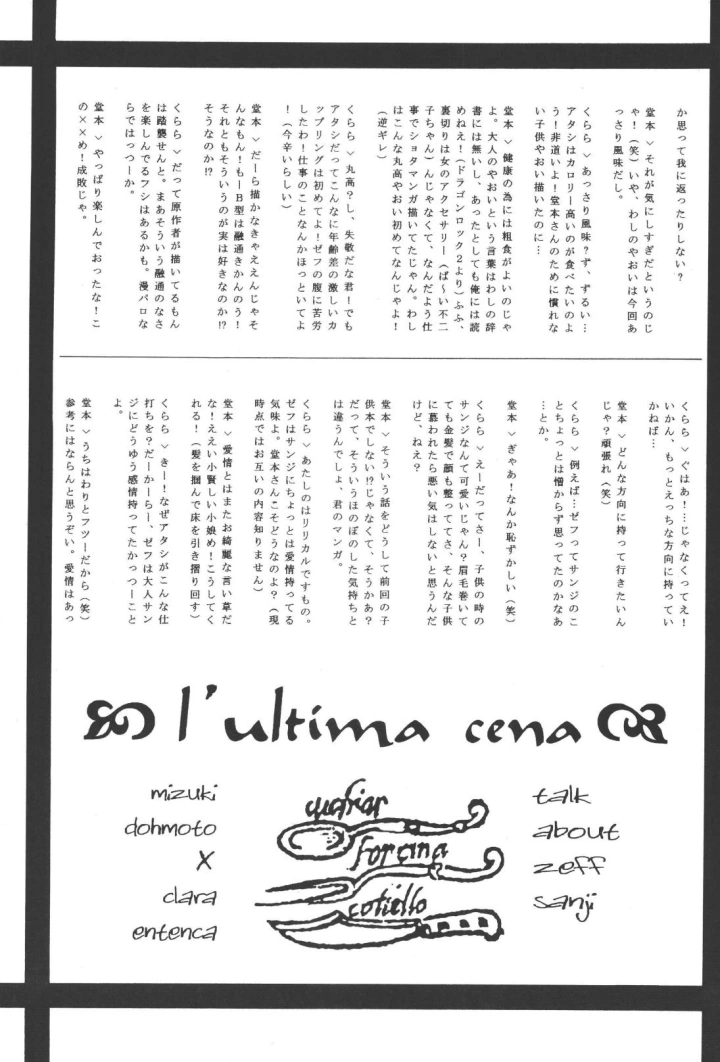 か思って我に返ったりしない?
堂本 > それが気にしすぎだというのじ
ゃ!(笑)いや、わしのやおいは今回あ
っさり風味だし。
くらら > あっさり風味?ず、ずるい…
アタシはカロリー高いのが食べたいのよ
う!非道いよ!堂本さんのために慣れな
い子供やおい描いたのに…
堂本 > 健康の為には粗食がよいのじゃ
よ。大人のやおいという言葉はわしの辞
書には無いし、あったとしても俺には読
めねえ!(ドラゴンロック2より)ふふ、
裏切りは女のアクセサリー(ば〜い不二
子ちゃん)んじゃなくて、なんだよう仕
事でショタマンガ描いてたじゃん。わし
はこんな丸高やおい初めてなんじゃよ!
(逆ギレ)
くらら > 丸高?し、失敬だな君!でも
アタシだってこんなに年齢差の激しいカ
ップリングは初めてよ!ゼフの腹に苦労
したわ!仕事のことなんかほっといてよ
!(今辛いらしい)
堂本 > だーら描かなきゃええんじゃそ
んなもん!もーB型は融通きかんのう!
それともそういうのが実は好きなのか!?
そうなのか!?
くらら > だって原作者が描いてるもん
は踏襲せんと。まあそういう融通のなさ
を楽しんでるフシはあるかも。漫パロな
らではっつーか。
堂本 > やっぱり楽しんでおったな!こ
の××め!成敗じゃ。
くらら > ぐはあ!…じゃなくってえ!
いかん、もっとえっちな方向に持ってい
かねば…
堂本 > どんな方向に持って行きたいん
じゃ?頑張れ(笑)
くらら > 例えば…ゼフってサンジのこ
とちょっとは憎からず思ってたのかなあ
…とか。
堂本 > ぎゃあ!なんか恥ずかしい(笑)
くらら > えーだってさー、子供の時の
サンジなんて可愛いじゃん?眉毛巻いて
ても金髪で顔も整っててさ、そんな子供
に慕われたら悪い気はしないと思うんだ
けど、ねえ?
堂本 > そういう話をどうして前回の子
供本でしない!?じゃなくて、そうかあ?
だって、そういうほのぼのした気持ちと
は違うんでしょ、君のマンガ。
くらら > あたしのはリリカルですもの。
ゼフはサンジにちょっとは愛情持ってる
気味よ。堂本さんこそどうなのよ?(現
時点ではお互いの内容知りません)
堂本 > 愛情とはまたお綺麗な言い草だ
な!ええい小賢しい小娘め!こうしてく
れる!(髪を掴んで床を引き摺り回す)
くらら > きー!なぜアタシがこんな仕
打ちを?だーかーらー、ゼフは大人サン
ジにどうゆう感情持ってたかっつーこと
よ。
堂本 > うちはわりとフツーだから(笑)
参考にはならんと思うぞい。愛情はあっ
l'ultima cena
mizuki
dohmoto
X
clara
entenca
forcina
coltello
talk
about
zeff
sanji